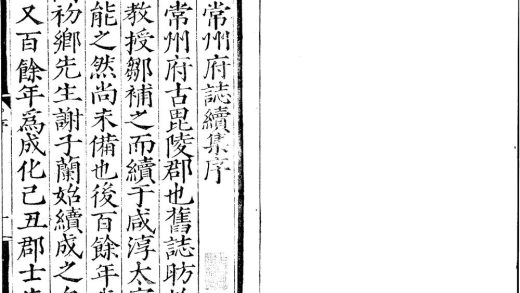 常州府誌續集序
常州府古毘陵郡也舊誌昉
教授鄒補之而續于咸淳太
能之然尚未備也後百餘年
初鄉先生謝子蘭始續成之
又百餘年爲成化己丑郡士
序